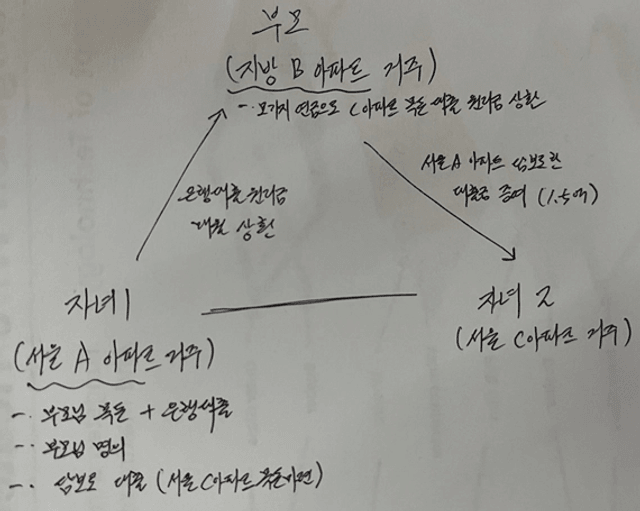 부모
(지방 B 아파트 거주)
- 모기지 연금으로 C아파트 목돈 대출 원리금 상환
서울 A 아파트 담보로한
대출금 증여 (1.5억)
은행대출 원리금
매월 상환
자녀 1
(서울 A 아파트 거주)
-. 부모님 목돈 + 은행대출
-. 부모님 명의
-. 담보로 대출 (서울 C아파트 목돈마련)
자녀 2
(서울 C아파트 거주)